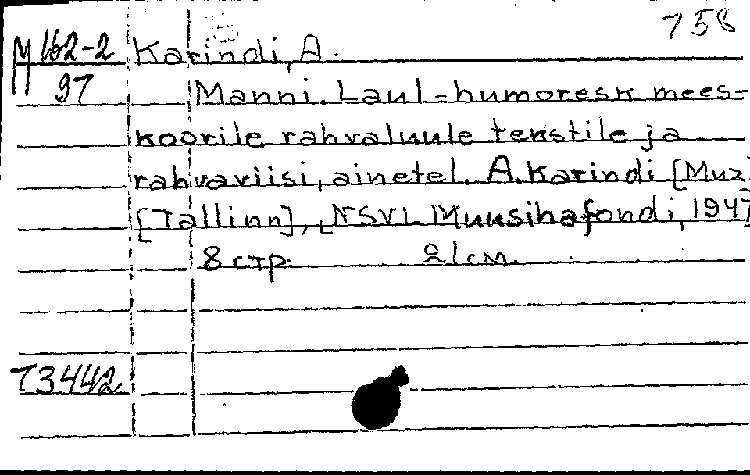 758
M 162-2 Karindi, A.
97 Manni. Laul-humoresk mees-
koorile rahvaluule tekstile ja
rahvaviisi, ainetel. A. Karindi [Muz
[Tallinn], [NSVL Muusihafondi, 1947
8 стр. 21 см.
T3442